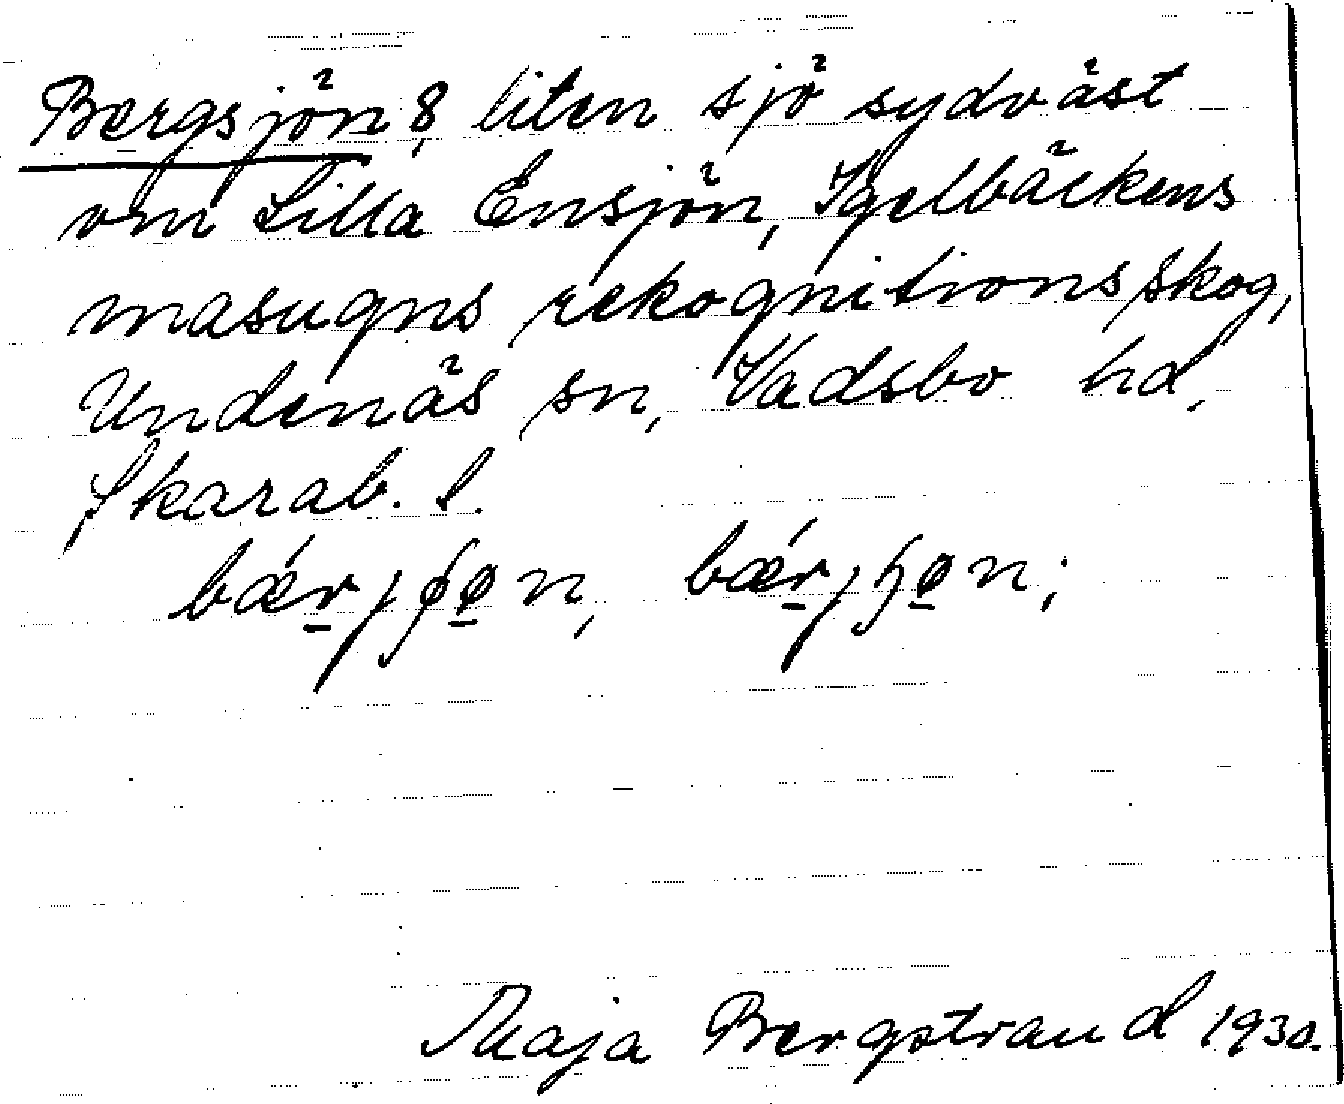 Bergsjön, 8, liten sjö sydväst
om Lilla Ensjön, Igelbäckens
masugns rekognitionsskog,
Undenäs sn, Vadsbo hd,
Skarab. l.
Maja Bergstrand 1930.